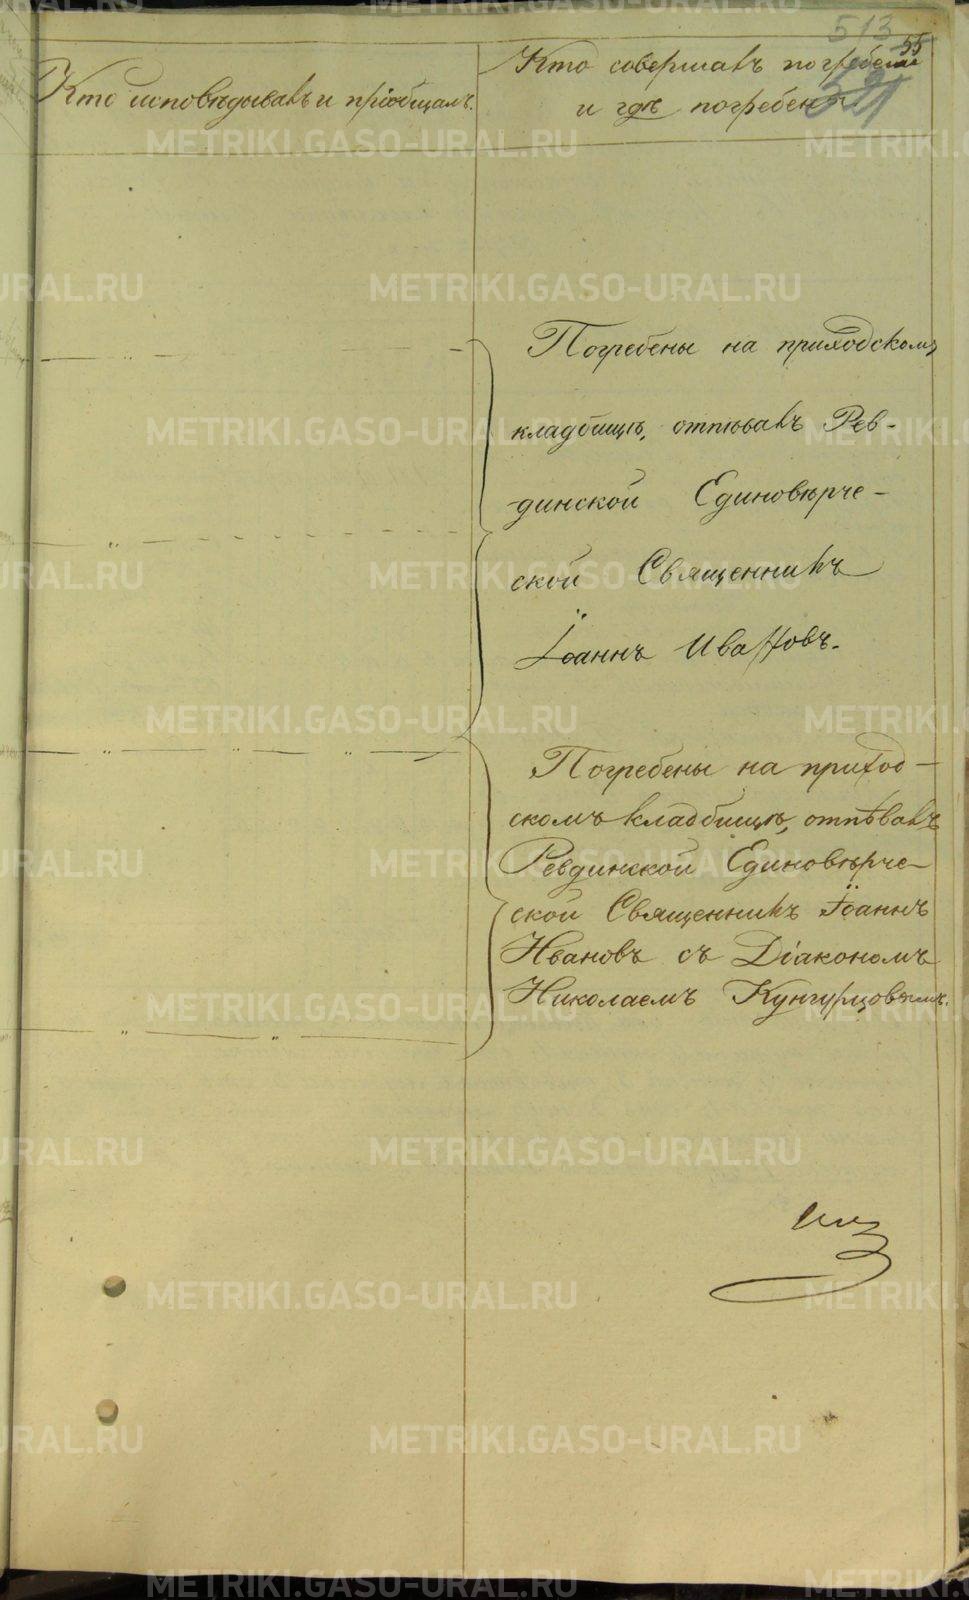 513
55
521
Кто исповѣдывалъ и пріобщалъ.
Кто совершалъ погребеніе
и гдѣ погребены
Погребены на приходскомъ
кладбищѣ, отпѣвалъ Рев-
динской Единовѣрче-
ской Священникъ
Іоаннъ Ивановъ.
Погребены на приход-
скомъ кладбищѣ, отпѣвалъ
Ревдинской Единовѣрче-
ской Священникъ Іоаннъ
Ивановъ съ Діакономъ
Николаемъ Кунгурцовымъ.
METRIKI.GASO-URAL.RU